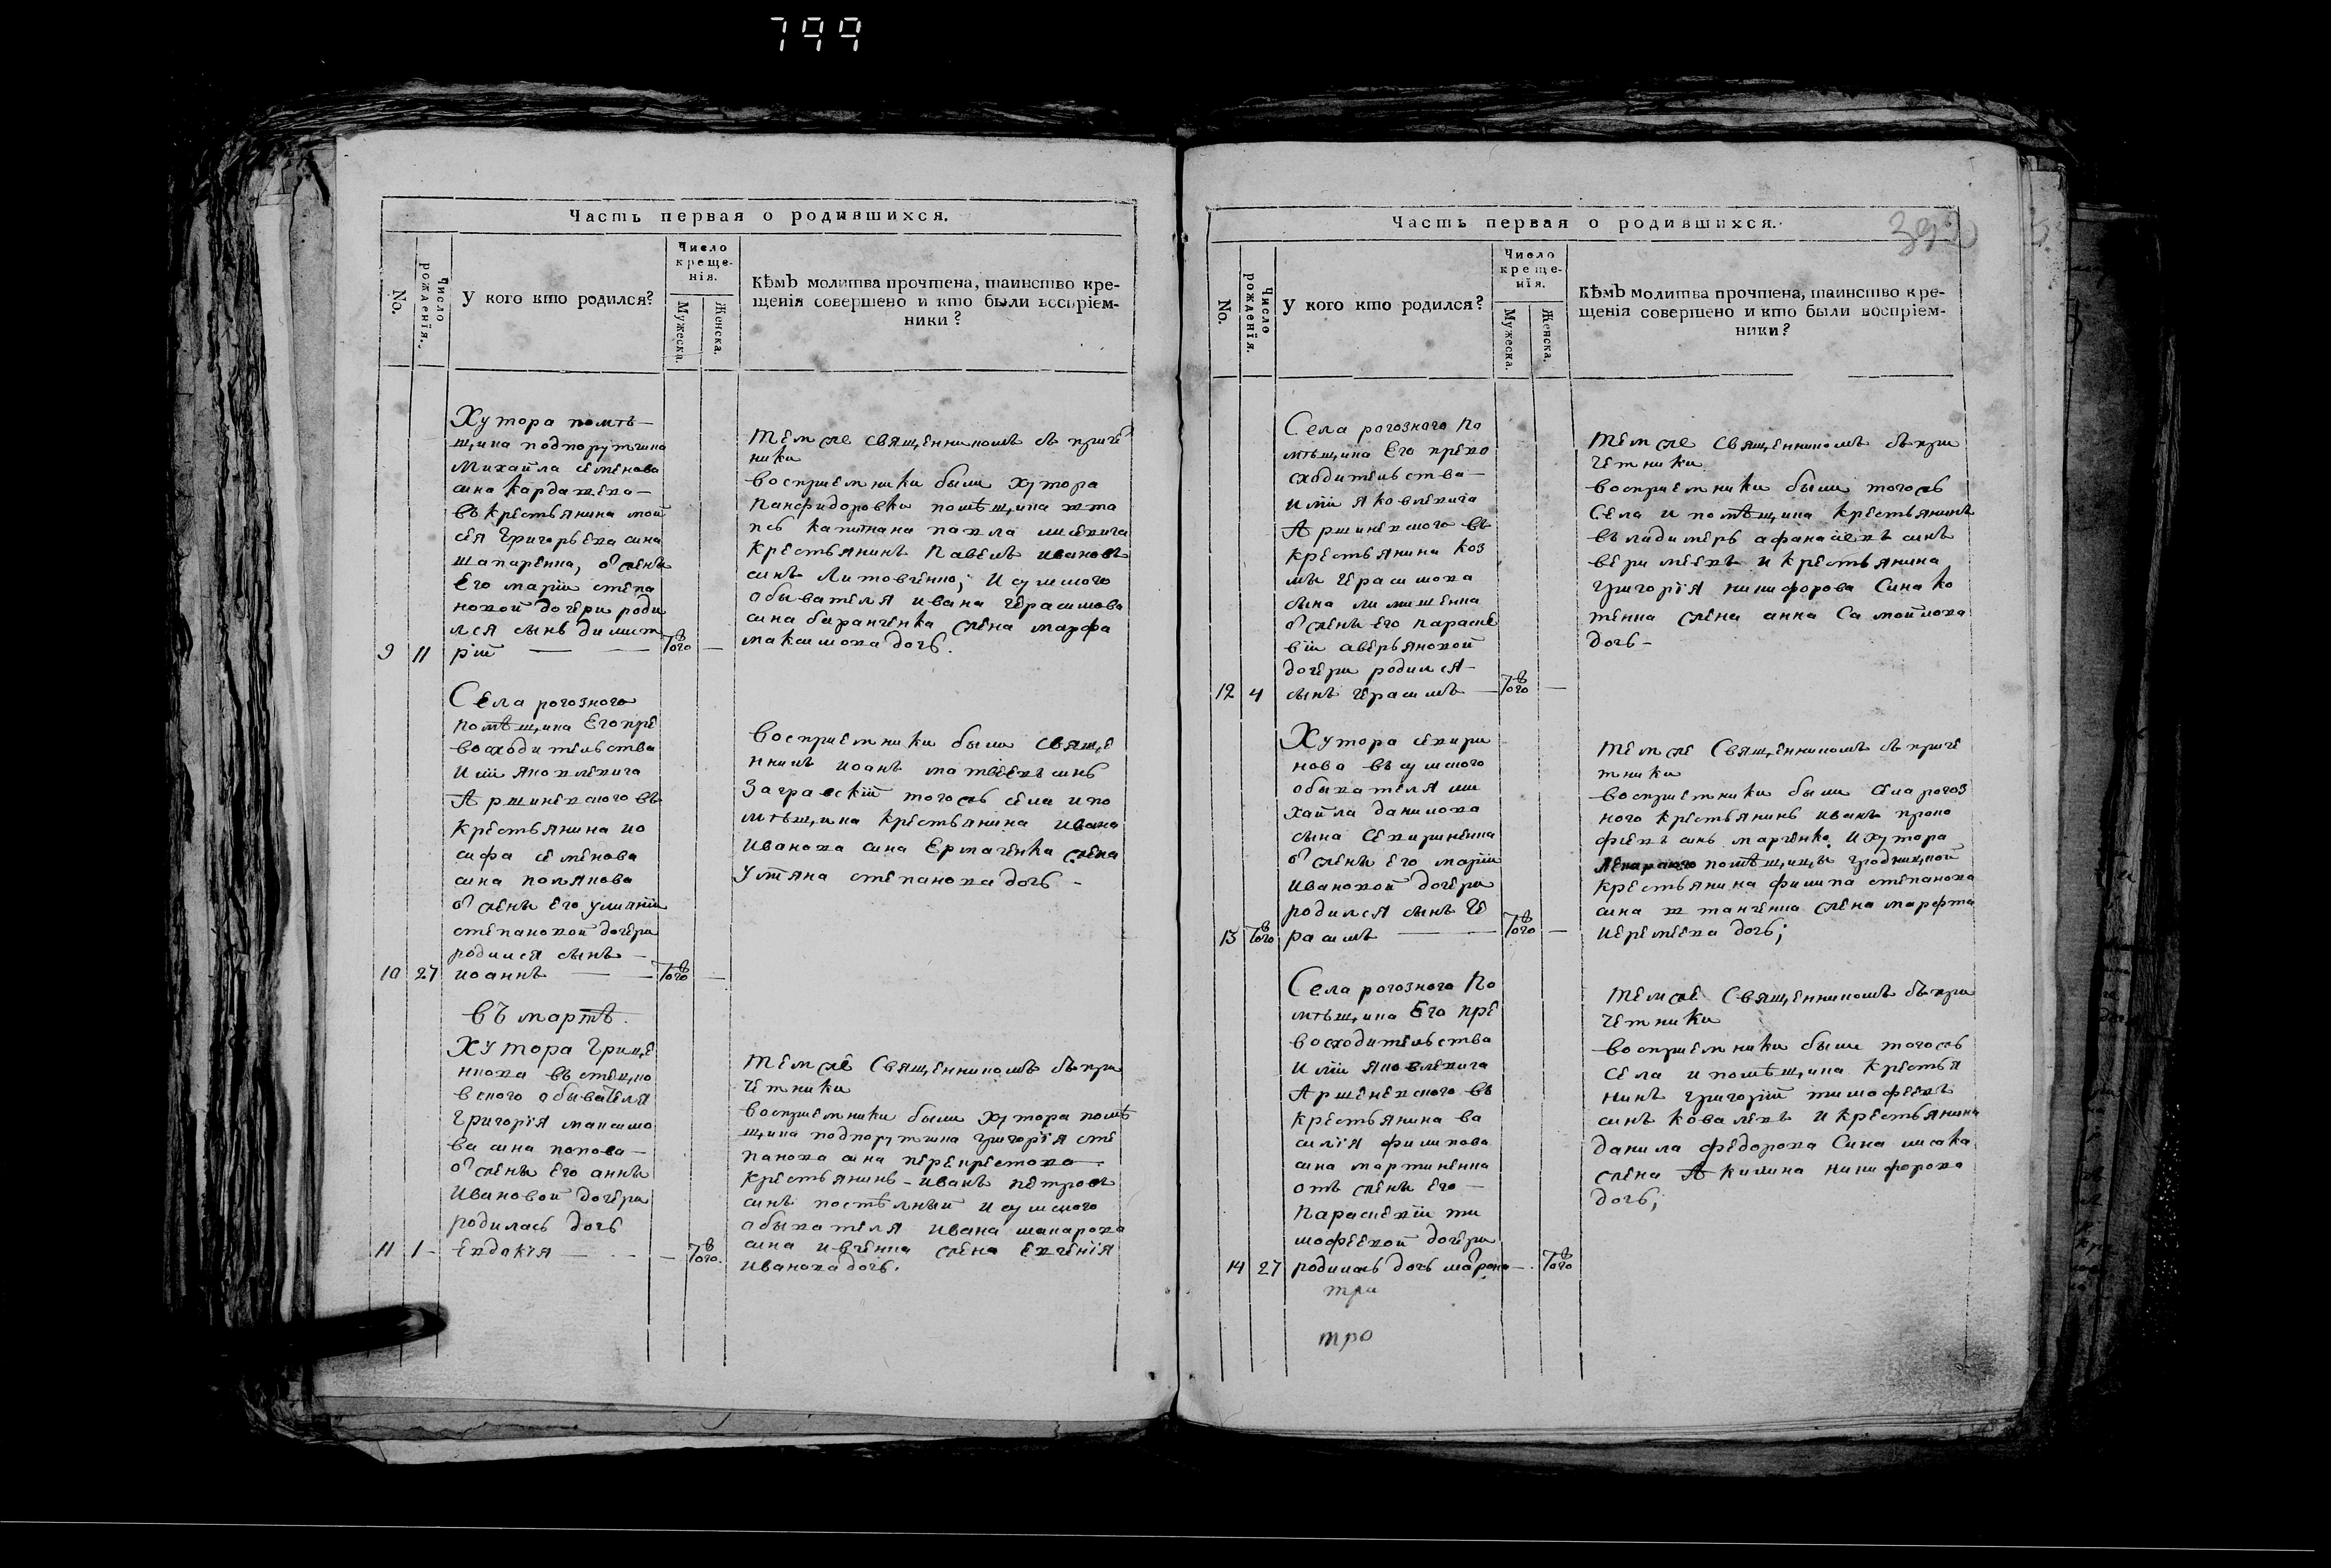 799
Часть первая о родившихся.
No.
Число рожденія.
У кого кто родился?
Число креще-
нія.
Мужеска.
Женска.
Кѣмъ молитва прочтена, таинство кре-
щенія совершено и кто были воспріем-
ники?
Хутора помѣ-
щика подпорутчика
Михайла семенова
сина кардашева-
въ крестьянина мой
сея Григорьева сина
шапаренка, о͡т женѣ
Его маріи степа
новой дочери роди
лся сынъ димит
9 11 рій — — Того —
темже священникомъ съ приче
ники
восприемники были хутора
панфидоровки помѣщика шта
пс капитана павла
крестьянинъ Павелъ ивановъ
синъ Литовченко; И сумского
обывателя ивана Герасимова
сина баранченка жена марфа
максимова дочь.
Села рогозного
помѣщика Его пре
восходительства
Иліи яковлевича
Аршеневского въ
крестьянина ио
сифа семенова
сина полянова
о͡т женѣ его улияніи
степановой дочери
родился сынъ —
10 27 иоаннъ — — Того —
восприемники были свяще
нникъ иоанъ матвеевъ синъ
Заграескій тогожъ села и по
мѣщика крестьянина ивана
Иванова сина Ермаченка жена
Ултяна степанова дочь -
въ мартѣ.
Хутора Грице
нкова въ степно
вского обывателя
Григорія максимо
ва сина попова —
о͡т женѣ его аннѣ
Ивановой дочери
родилась дочь
11 1 - Евдокія — - - — Того.
темже Священникомъ съ при
четники
восприемники были хутора помѣ
щика подпорутчика григорія сте
панова сина перекрестова
крестьянинъ - иванъ петровъ
синъ постѣлный И сумского
обывателя Ивана макарова
сина ивченка жена евгенія
Иванова дочь.
Часть первая о родившихся.
392
No.
Число рожденія.
У кого кто родился?
Число креще-
нія.
Мужеска.
Женска.
Кѣмъ молитва прочтена, таинство кре-
щенія совершено и кто были воспріем-
ники?
Села рогозного по
мѣщика Его прево
сходительства —
Иліи Яковлевича
Аршиневского въ
крестьянина коз
мы Герасимова
сына лимишенка
о͡т женѣ его параске
віи аверьяновой
дочери родился —
12 4 сынъ Герасимъ — Того —
темже Священникомъ съ при
четники
восприемники были тогожъ
Села и помѣщика крестьянинъ
въладимеръ афанасіевъ синъ
веримеевъ и крестьянина
григорія никифорова Сина ко
тенка жена анна Самойлова
дочь —
Хутора секири
нова въ сумского
обывателя ми
хайла данилова
сына Секириненка
о͡т женѣ его маріи
ивановой дочери
родился сынъ Ге
13 Того расимъ — — Того —
темже Священникомъ съ приче
тники
восприемники были села рогоз
ного крестьянинъ иванъ проко
фиевъ синъ марченко И хутора
помѣщици
крестьянина филипа степанова
сина штанченка жена марфта
иеремеева дочь;
Села рогозного По
мѣщика Его пре
восходительства
Иліи яковлевича
Аршеневского въ
крестьянина ва
силія филипова
сина мартиненка
отъ женѣ его —
параскевіи ти
мофеевой дочери
14 27 родилась дочь матрона — . Того
темже Священникомъ съ при
четники
восприемники были тогожъ
села и помѣщика крестья
нинъ григорій тимофеевъ
синъ ковалевъ И крестьянина
данила федорова Сина лисака
жена Акилина никифорова
дочь;
тра
тро